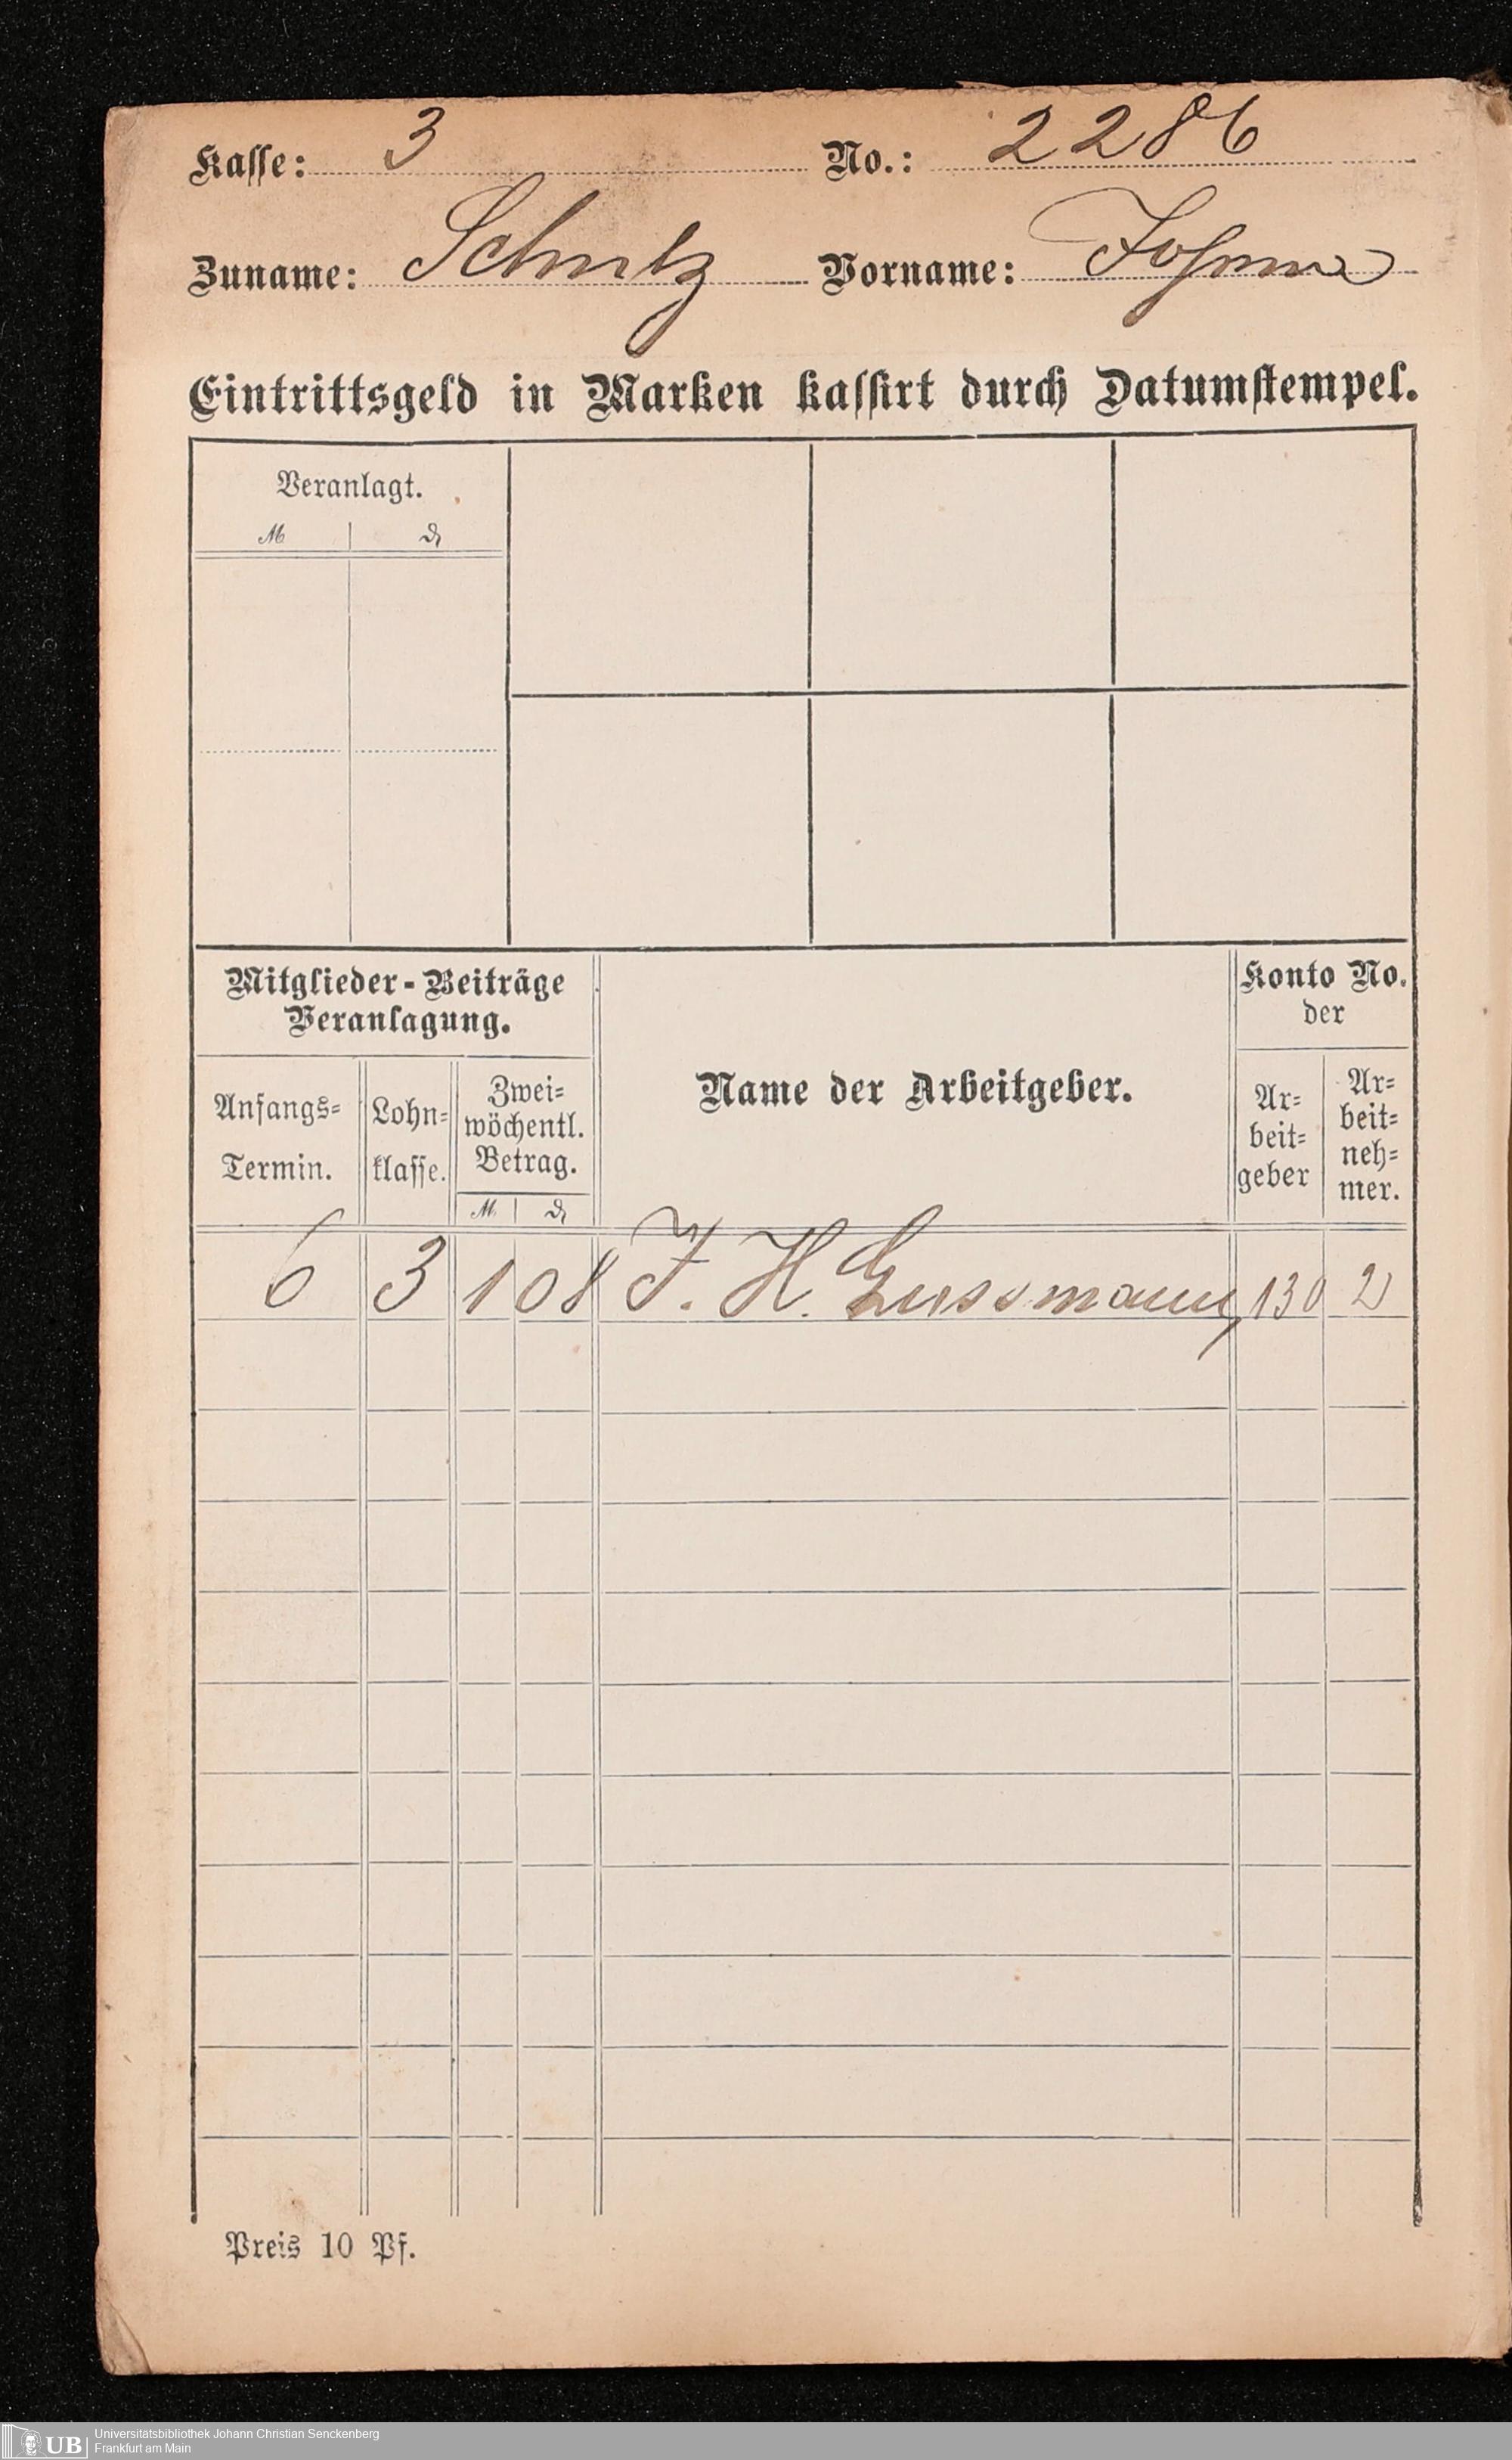 Kasse: 3 No.: 2286
Zuname: Schmitz Vorname:
Eintrittsgeld in Marken kassirt durch Datumstempel.
Veranlagt.
ℳ ₰
Mitglieder-Beiträge
Veranlagung.
Anfangs-
Termin.
Lohn-
klasse.
Zwei-
wöchentl.
Betrag.
ℳ ₰
Name der Arbeitgeber.
Konto No.
der
Ar-
beit-
geber
Ar-
beit-
neh-
mer.
6 3 1 08 J. H. Gussmann, 130 2
Preis 10 Pf.
UB
Universitätsbibliothek Johann Christian Senckenberg
Frankfurt am Main